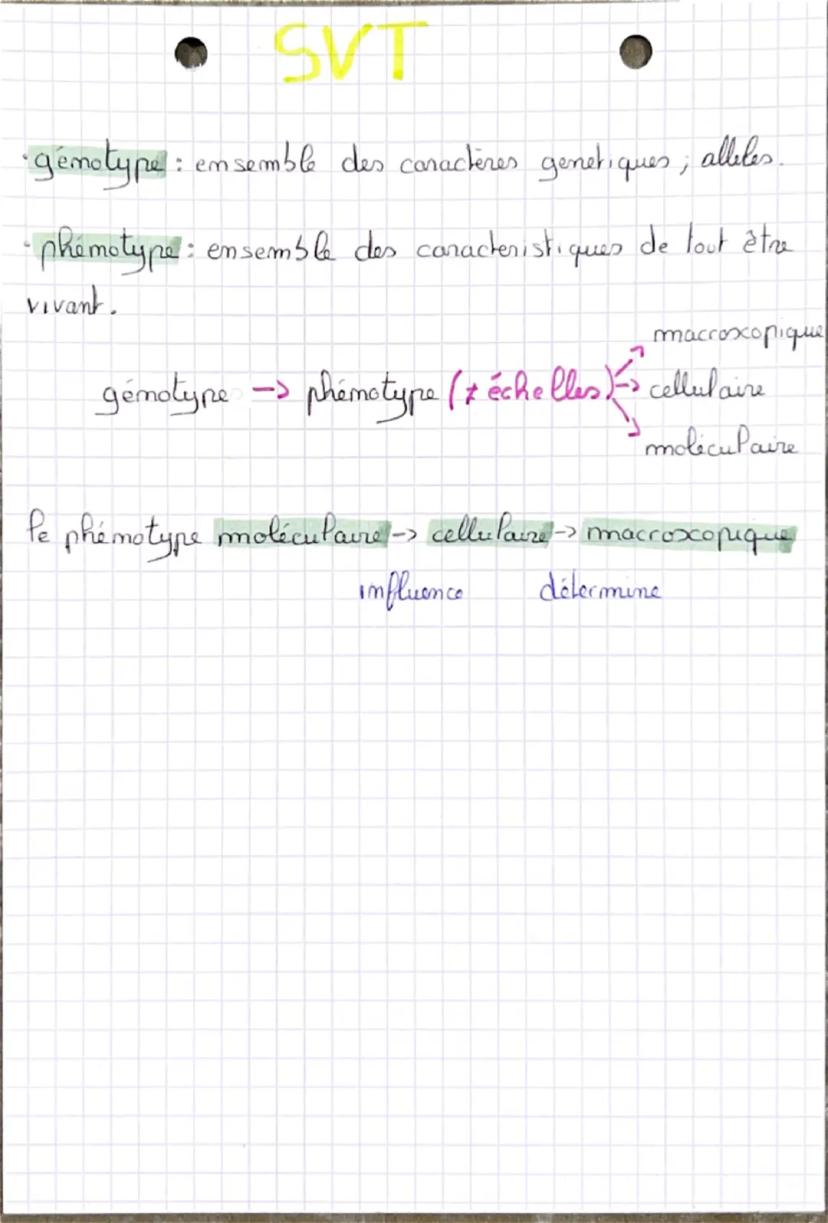 SVT
· génotype : ensemble des caractères genetiques ; alleles.
· phénotype : ensemble des caracteristiques de tout être
vivant.
macroscopique
génotype -> phénotype (≠ échelles) -> cellulaire
moléculaire
le phénotype moléculaire -> cellulaire -> macroscopique
influence détermine